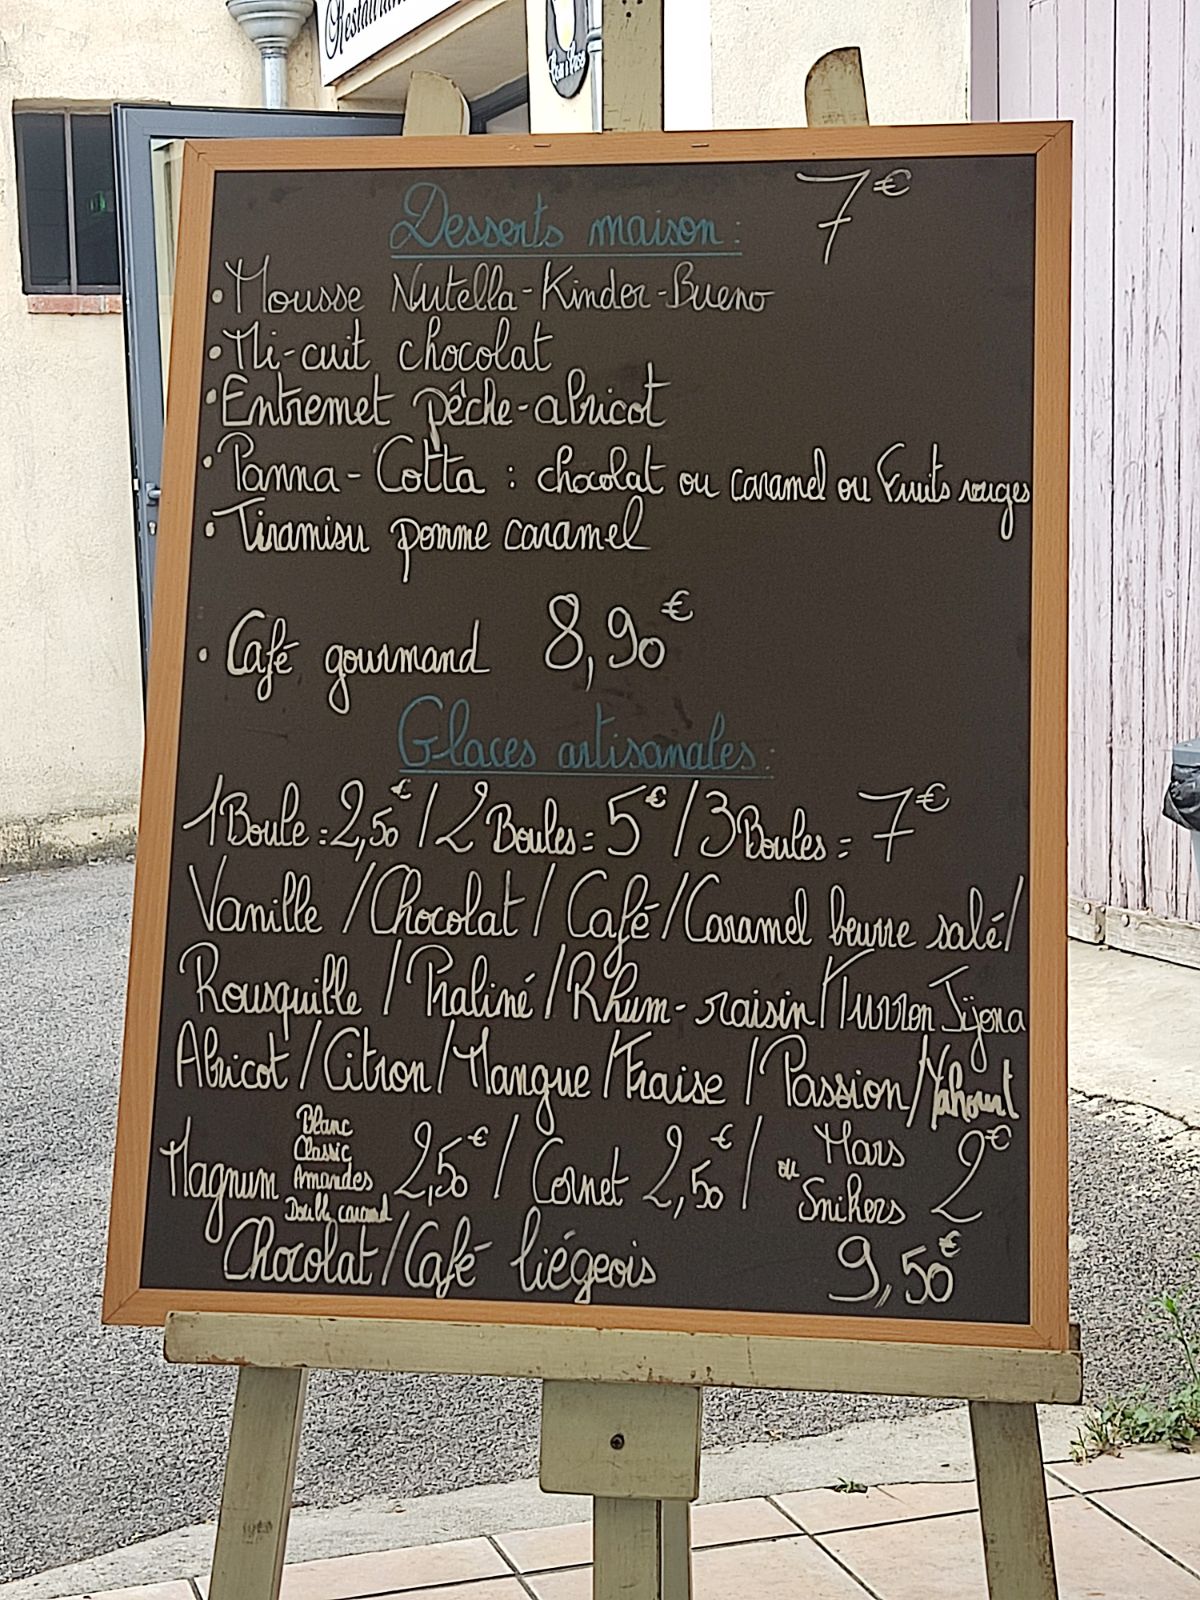 Restaurant
Desserts maison : 7€
• Mousse Nutella-Kinder-Bueno
• Mi-cuit chocolat
• Entremet pêche-abricot
• Panna-Cotta : chocolat ou caramel ou Fruits rouges
• Tiramisu pomme caramel
• Café gourmand 8,90€
Glaces artisanales :
1 Boule = 2,50€ / 2 Boules = 5€ / 3 Boules = 7€
Vanille / Chocolat / Café / Caramel beurre salé /
Rousquille / Praliné / Rhum-raisin / Turron Jijona
Abricot / Citron / Mangue / Fraise / Passion / Yahourt
Magnum Blanc Classic Amandes Double caramel 2,50€ / Cornet 2,50€ / Mars ou Snikers 2€
Chocolat / Café liégeois 9,50€